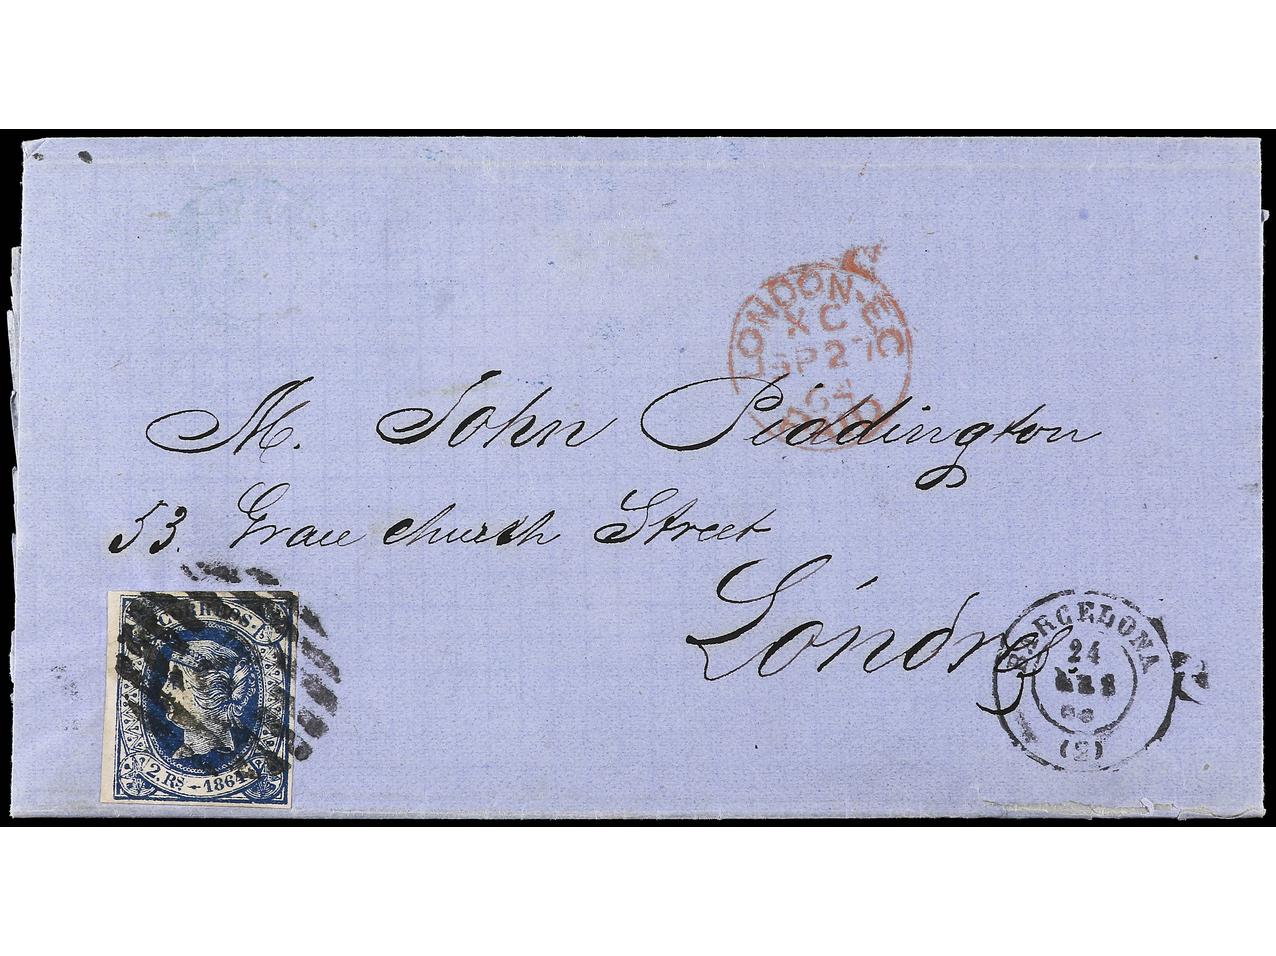 LONDON·EC
XC
SP 27
64
PAID
M. John Piddington
53. Grace church Street
Londres
CORREOS.
2. Rs. - 1864
BARCELONA
24
(2)